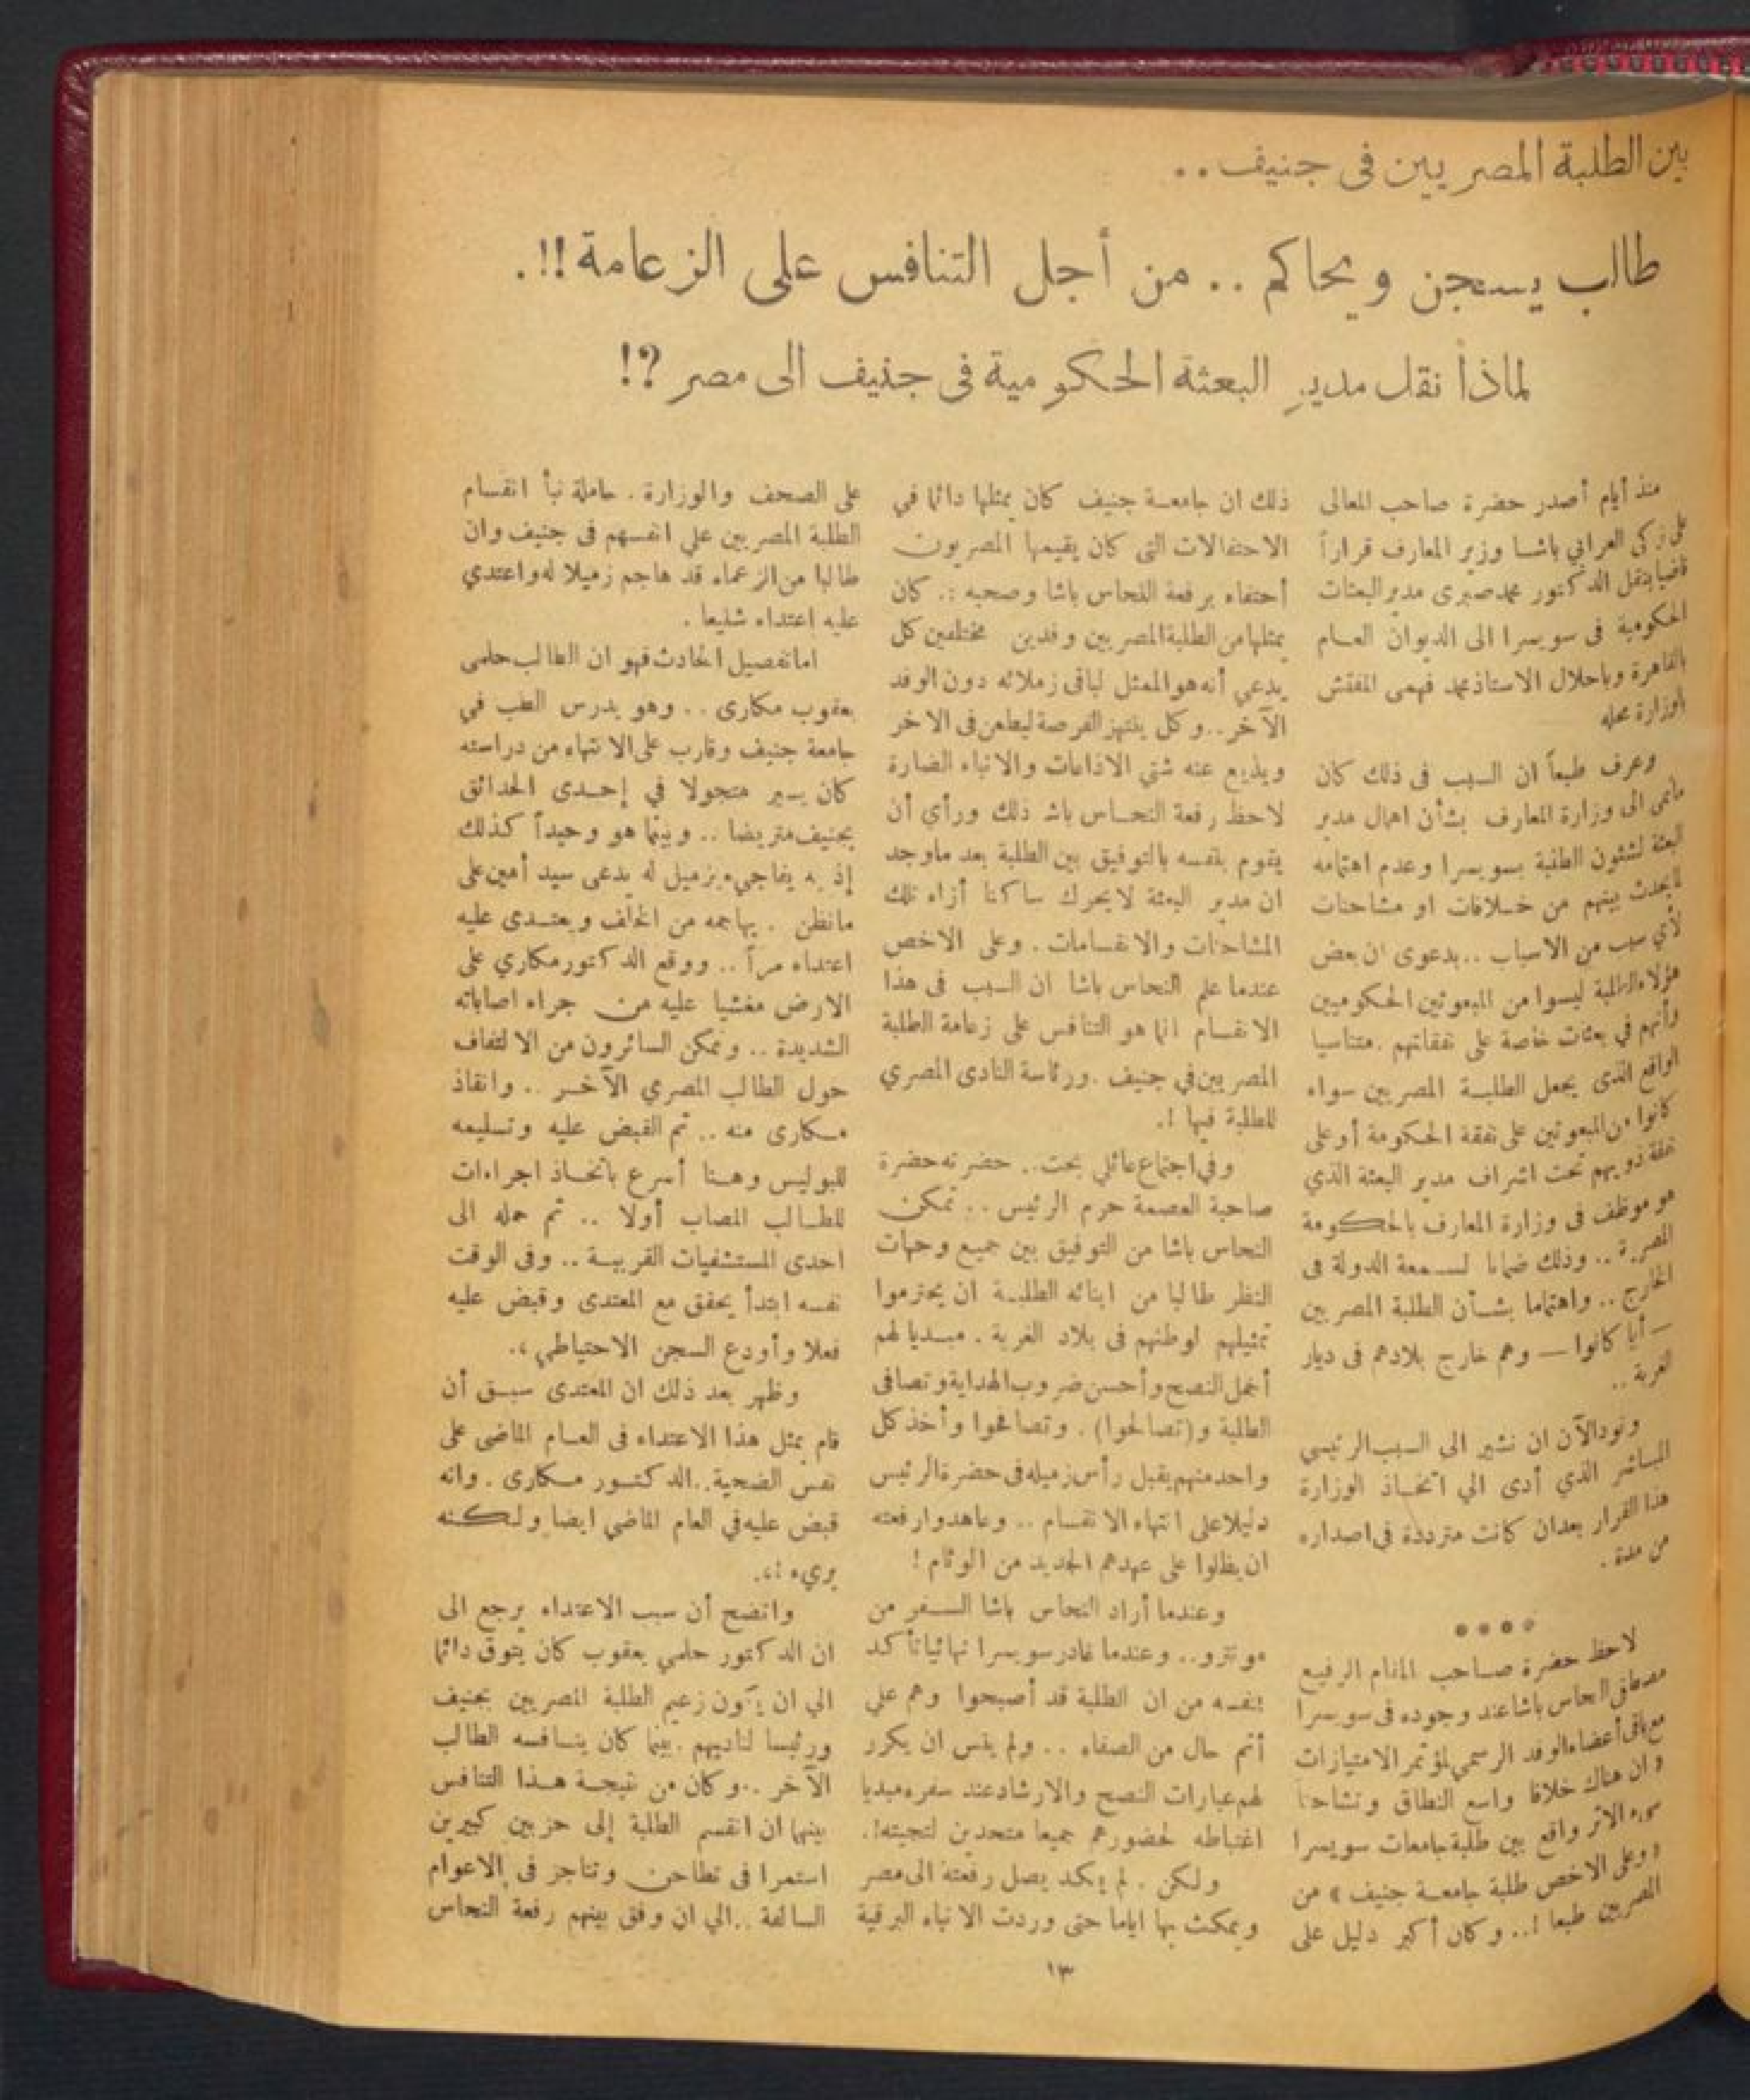 بين الطلبة المصريين فى جنيف ..
طالب يسجن ويحاكم .. من أجل التنافس على الزعامة !! .
لماذا نقل مدير البعثة الحكومية فى جنيف الى مصر ?!
منذ أيام أصدر حضرة صاحب المعالى
على زكى العرابي باشا وزير المعارف قراراً
قاضيا بنقل الدكتور محمد صبرى مدير البعثات
الحكومية فى سويسرا الى الديوان العام
بالقاهرة وباحلال الاستاذ محمد فهمى المفتش
بالوزارة محله
وعرف طبعاً ان السبب فى ذلك كان
مانمى الى وزارة المعارف بشأن اهمال مدير
البعثة لشئون الطلبة بسويسرا وعدم اهتمامه
لما يحدث بينهم من خلافات او مشاحنات
لأي سبب من الاسباب .. بدعوى ان بعض
هؤلاء الطلبة ليسوا من المبعوثين الحكوميين
وأنهم في بعثات خاصة على نفقاتهم . متناسيا
الواقع الذى يجعل الطلبة المصريين سواء
كانوا من المبعوثين على نفقة الحكومة أو على
نفقة ذويهم تحت اشراف مدير البعثة الذي
هو موظف فى وزارة المعارف بالحكومة
المصرية .. وذلك ضمانا لسمعة الدولة فى
الخارج .. واهتماما بشأن الطلبة المصريين
— أيا كانوا — وهم خارج بلادهم فى ديار
الغربة ..
ونود الآن ان نشير الى السبب الرئيسى
المباشر الذي أدى الي اتخاذ الوزارة
هذا القرار بعد ان كانت مترددة فى اصداره
من مدة .
****
لاحظ حضرة صاحب المقام الرفيع
مصطفى النحاس باشا عند وجوده فى سويسرا
مع باقى أعضاء الوفد الرسمي لمؤتمر الامتيازات
ان هناك خلافا واسع النطاق وتشاحنا
سىء الاثر واقع بين طلبة جامعات سويسرا
« وعلى الاخص طلبة جامعة جنيف » من
المصريين طبعا ! .. وكان أكبر دليل على
ذلك ان جامعة جنيف كان يمثلها دائما في
الاحتفالات التى كان يقيمها المصريون
أحتفاء برفعة النحاس باشا وصحبه :. كان
يمثلها من الطلبة المصريين وفدين مختلفين كل
يدعي أنه هو الممثل لباقى زملائه دون الوفد
الآخر .. وكل ينتهز الفرصة ليطعن فى الاخر
ويذيع عنه شتي الاذاعات والانباء الضارة
لاحظ رفعة النحاس باشا ذلك ورأي أن
يقوم بنفسه بالتوفيق بين الطلبة بعد ماوجد
ان مدير البعثة لا يحرك ساكنا أزاء تلك
المشاحنات والانقسامات . وعلى الاخص
عندما علم النحاس باشا ان السبب فى هذا
الانقسام انما هو التنافس على زعامة الطلبة
المصريين في جنيف . ورئاسة النادى المصري
للطلبة فيها !.
وفى اجتماع عائلي بحت .. حضرته حضرة
صاحبة العصمة حرم الرئيس .. تمكن
النحاس باشا من التوفيق بين جميع وجهات
النظر طالبا من ابنائه الطلبة ان يحترموا
تمثيلهم لوطنهم فى بلاد الغربة . مسديا لهم
أجمل النصح وأحسن ضروب الهداية وتصافى
الطلبة و(تصالحوا) . وتصافحوا وأخذ كل
واحد منهم يقبل رأس زميله فى حضرة الرئيس
دليلا على انتهاء الانقسام .. وعاهدوا رفعته
ان يظلوا على عهدهم الجديد من الوئام !
وعندما أراد النحاس باشا السفر من
مونترو .. وعندما غادر سويسرا نهائيا تأكد
بنفسه من ان الطلبة قد أصبحوا وهم على
أتم حال من الصفاء .. ولم ينس ان يكرر
لهم عبارات النصح والارشاد عند سفره مبديا
اغتباطه لحضورهم جميعا متحدين لتحيته !.
ولكن . لم يكد يصل رفعته الى مصر
ويمكث بها اياما حتى وردت الانباء البرقية
على الصحف والوزارة . حاملة نبأ انقسام
الطلبة المصريين على انفسهم فى جنيف وان
طالبا من الزعماء قد هاجم زميلا له واعتدي
عليه اعتداء شنيعا .
اما تفصيل الحادث فهو ان الطالب حلمى
يعقوب مكارى .. وهو يدرس الطب في
جامعة جنيف وقارب على الانتهاء من دراسته
كان يسير متجولا في إحدى الحدائق
بجنيف متريضا .. وبينما هو وحيداً كذلك
إذ به يفاجىء بزميل له يدعى سيد أمين على
مانظن . يهاجمه من الخلف ويعتدى عليه
اعتداء مراً .. ووقع الدكتور مكاري على
الارض مغشيا عليه من جراء اصاباته
الشديدة .. وتمكن السائرون من الالتفاف
حول الطالب المصري الآخر .. وانقاذ
مكارى منه .. تم القبض عليه وتسليمه
للبوليس وهنا أسرع باتخاذ اجراءات
للطالب المصاب أولا .. تم حمله الى
احدى المستشفيات القريبة .. وفى الوقت
نفسه ابتدأ يحقق مع المعتدى وقبض عليه
فعلا وأودع السجن الاحتياطي ،.
وظهر بعد ذلك ان المعتدى سبق أن
قام بمثل هذا الاعتداء فى العام الماضى على
نفس الضحية .. الدكتور مكارى . وانه
قبض عليه في العام الماضي ايضا ولكنه
بريء !،.
واتضح أن سبب الاعتداء يرجع الى
ان الدكتور حلمي يعقوب كان يتوق دائما
الي ان يكون زعيم الطلبة المصريين بجنيف
ورئيسا لناديهم . بينما كان ينافسه الطالب
الآخر .. وكان من نتيجة هذا التنافس
بينهما ان انقسم الطلبة إلى حزبين كبيرين
استمرا فى تطاحن وتناجز فى الاعوام
السالفة .. الي ان وفق بينهم رفعة النحاس
١٣